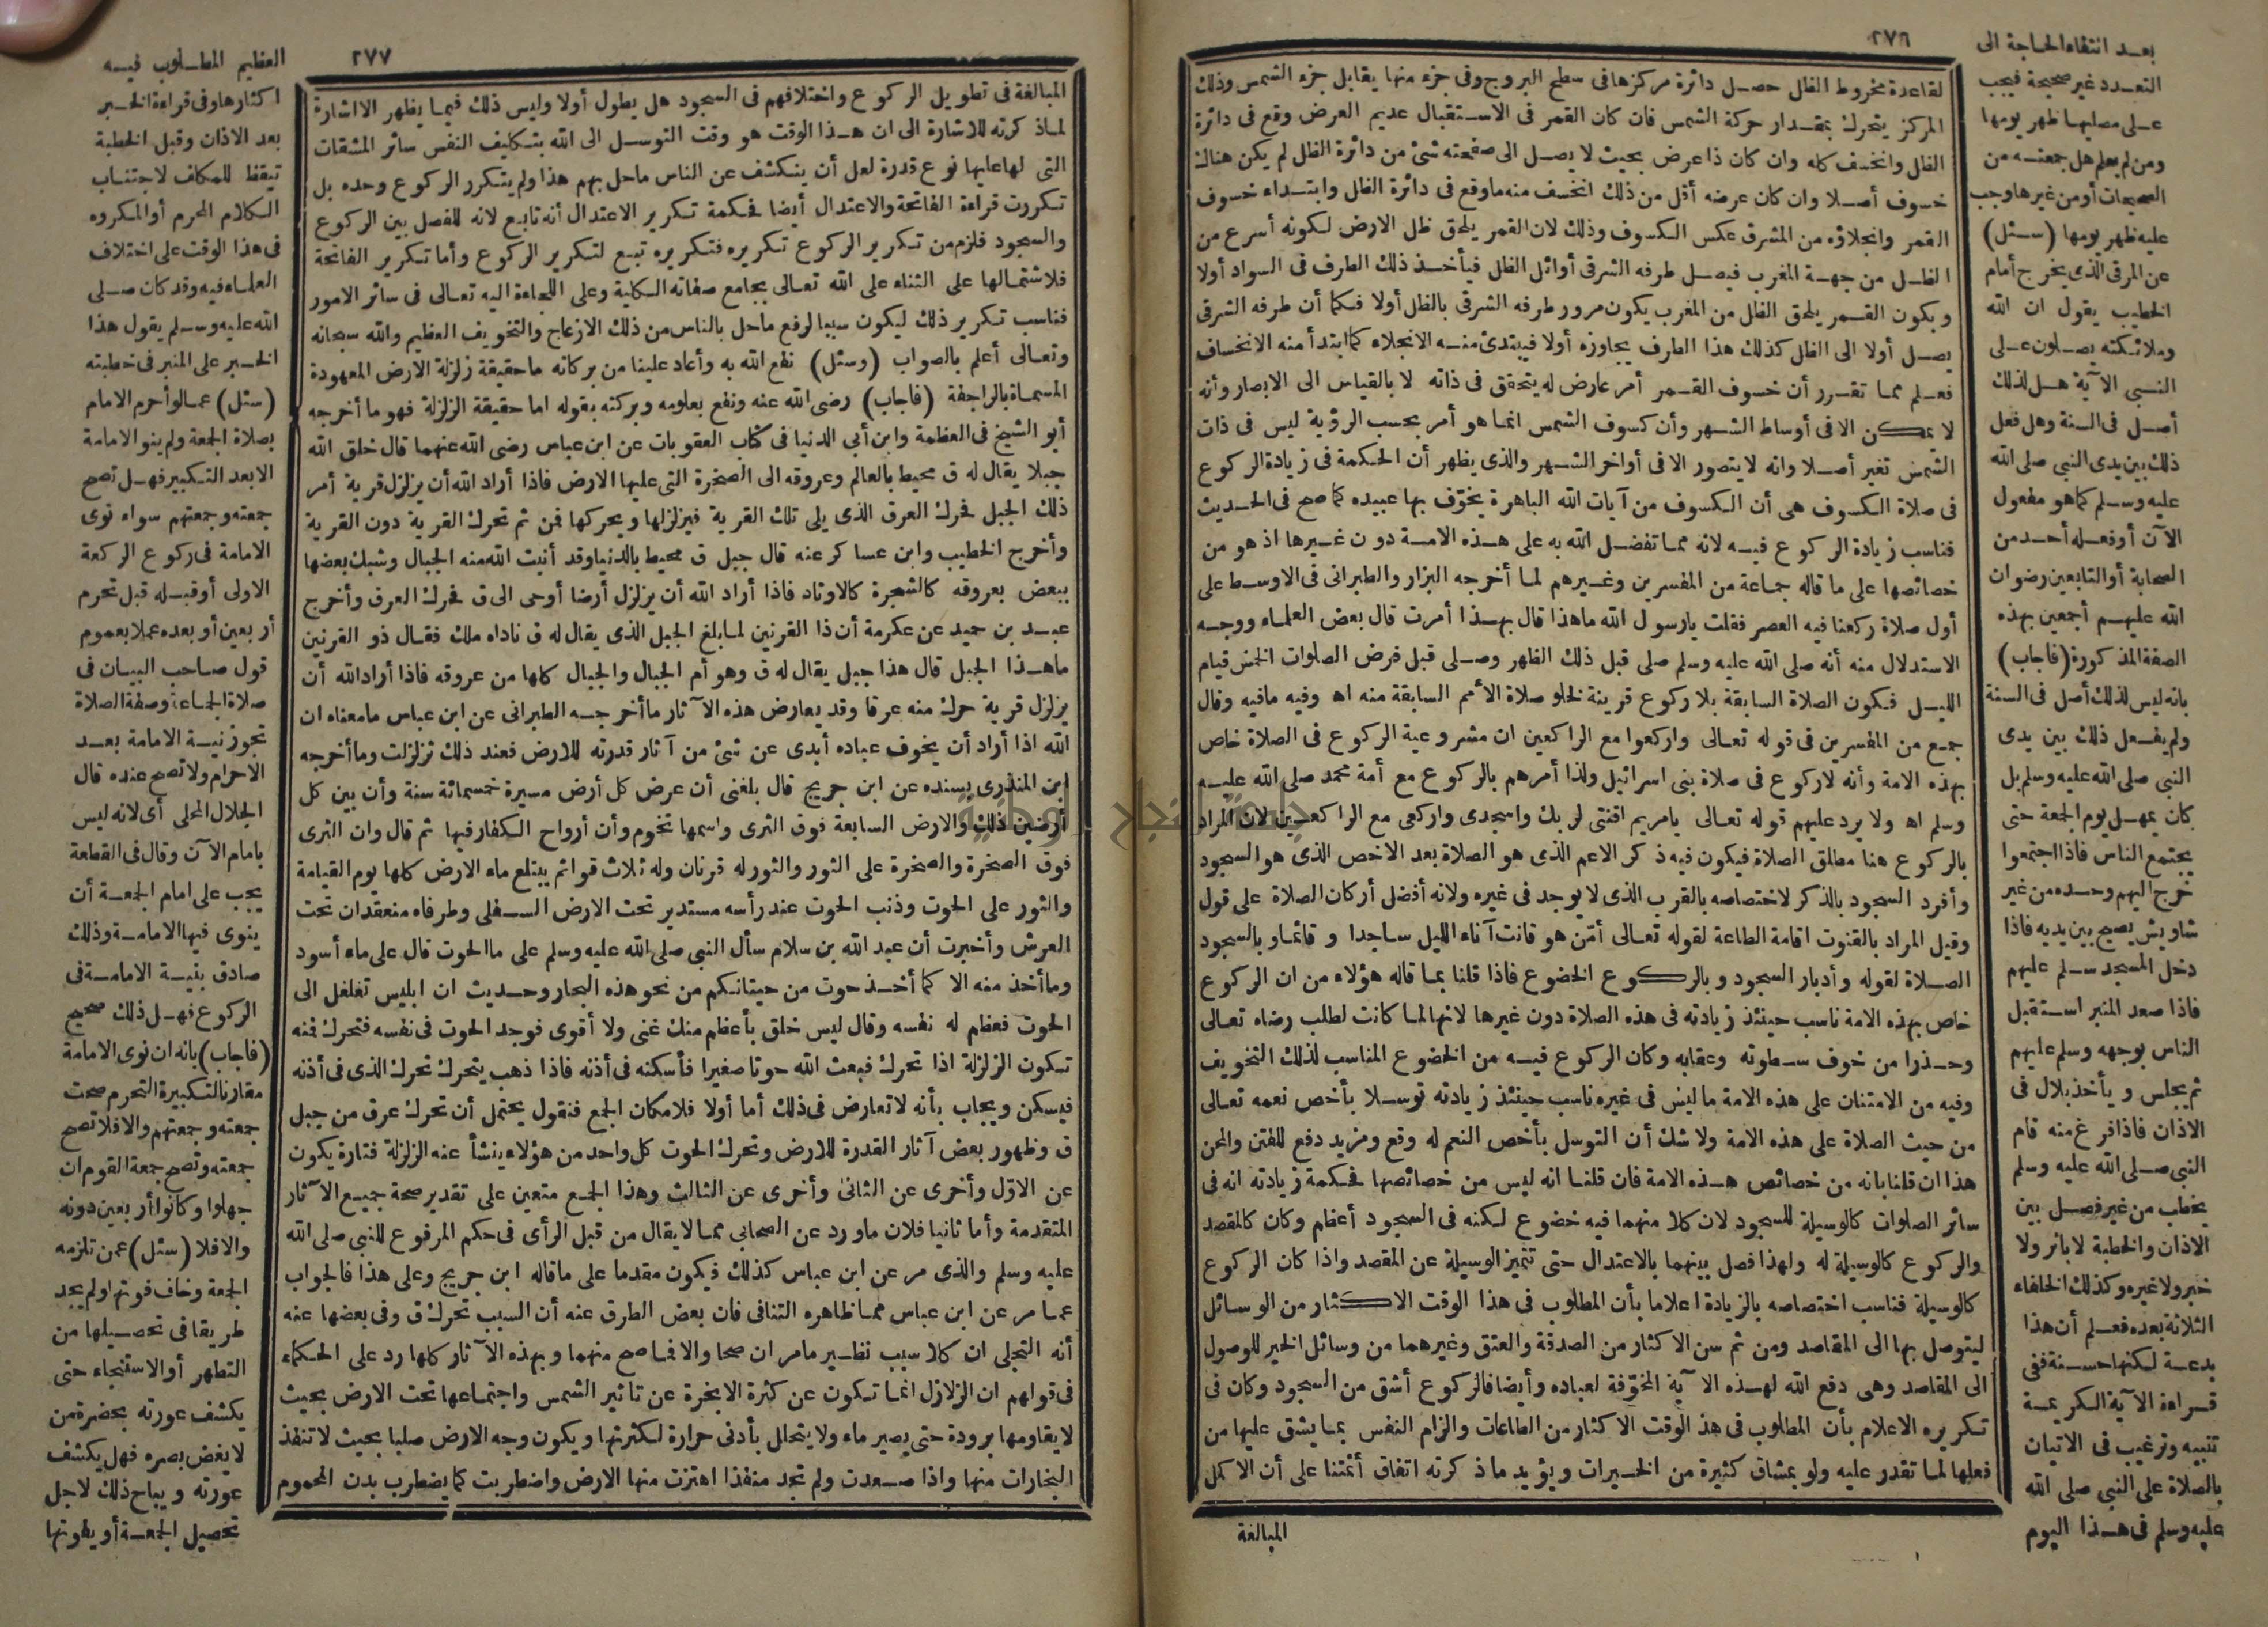 ٢٧٦
لقاعدة مخروط الظل حصل دائرة مركزها فى سطح البروج وفى جزء منها يقابل جزء الشمس وذلك
المركز يتحرك بمقدار حركة الشمس فان كان القمر فى الاستقبال عديم العرض وقع فى دائرة
الظل وانخسف كله وان كان ذا عرض بحيث لا يصل الى صفحته شئ من دائرة الظل لم يكن هنالك
خسوف أصلا وان كان عرضه أقل من ذلك انخسف منه ما وقع فى دائرة الظل وابتداء خسوف
القمر وانجلاؤه من المشرق عكس الكسوف وذلك لان القمر يلحق ظل الارض لكونه أسرع من
الظل من جهة المغرب فيصل طرفه الشرقى أوائل الظل فيأخذ ذلك الطرف فى السواد أولا
ويكون القمر يلحق الظل من المغرب يكون مرور طرفه الشرقى بالظل أولا فكما أن طرفه الشرقى
يصل أولا الى الظل كذلك هذا الطرف يجاوزه أولا فيبتدئ منه الانجلاء كما ابتدأ منه الانخساف
فعلم مما تقرر أن خسوف القمر أمر عارض له يتحقق فى ذاته لا بالقياس الى الابصار وأنه
لا يمكن الا فى أوساط الشهر وأن كسوف الشمس انما هو أمر بحسب الرؤية ليس فى ذات
الشمس تغير أصلا وانه لا يتصور الا فى أواخر الشهر والذى يظهر أن الحكمة فى زيادة الركوع
فى صلاة الكسوف هى أن الكسوف من آيات الله الباهرة يخوّف بها عبيده كما صح فى الحديث
فناسب زيادة الركوع فيه لانه مما تفضل الله به على هذه الامة دون غيرها اذ هو من
خصائصها على ما قاله جماعة من المفسرين وغيرهم لما أخرجه البزار والطبرانى فى الاوسط على
أول صلاة ركعنا فيه العصر فقلت يا رسول الله ما هذا قال بهذا أمرت قال بعض العلماء ووجه
الاستدلال منه أنه صلى الله عليه وسلم صلى قبل ذلك الظهر وصلى قبل فرض الصلوات الخمس قيام
الليل فكون الصلاة السابقة بلا ركوع قرينة لخلو صلاة الأمم السابقة منه اه وفيه ما فيه وقال
جمع من المفسرين فى قوله تعالى واركعوا مع الراكعين ان مشروعية الركوع فى الصلاة خاص
بهذه الامة وأنه لا ركوع فى صلاة بنى اسرائيل ولذا أمرهم بالركوع مع أمة محمد صلى الله عليه
وسلم اه ولا يرد عليهم قوله تعالى يا مريم اقنتى لربك واسجدى واركعى مع الراكعين لان المراد
بالركوع هنا مطلق الصلاة فيكون فيه ذكر الاعم الذى هو الصلاة بعد الاخص الذى هو السجود
وأفرد السجود بالذكر لاختصاصه بالقرب الذى لا يوجد فى غيره ولانه أفضل أركان الصلاة على قول
وقيل المراد بالقنوت اقامة الطاعة لقوله تعالى أمّن هو قانت آناء الليل ساجدا وقائما وبالسجود
الصلاة لقوله وأدبار السجود وبالركوع الخضوع فاذا قلنا بما قاله هؤلاء من ان الركوع
خاص بهذه الامة ناسب حينئذ زيادته فى هذه الصلاة دون غيرها لانها لما كانت لطلب رضاه تعالى
وحذرا من خوف سطوته وعقابه وكان الركوع فيه من الخضوع المناسب لذلك التخويف
وفيه من الامتنان على هذه الامة ما ليس فى غيره ناسب حينئذ زيادته توسلا بأخص نعمه تعالى
من حيث الصلاة على هذه الامة ولا شك أن التوسل بأخص النعم له وقع ومزيد دفع للفتن والمحن
هذا ان قلنا بانه من خصائص هذه الامة فان قلنا انه ليس من خصائصها فحكمة زيادته انه فى
سائر الصلوات كالوسيلة للسجود لان كلا منهما فيه خضوع لكنه فى السجود أعظم وكان كالمقصد
والركوع كالوسيلة له ولهذا فصل بينهما بالاعتدال حتى تتميز الوسيلة عن المقصد واذا كان الركوع
كالوسيلة فناسب اختصاصه بالزيادة اعلاما بأن المطلوب فى هذا الوقت الاكثار من الوسائل
ليتوصل بها الى المقاصد ومن ثم سن الاكثار من الصدقة والعتق وغيرهما من وسائل الخير للوصول
الى المقاصد وهى دفع الله لهذه الآية المخوّفة لعباده وأيضا فالركوع أشق من السجود وكان فى
تكريره الاعلام بأن المطلوب فى هذ الوقت الاكثار من الطاعات والزام النفس بما يشق عليها من
فعلها لما تقدر عليه ولو بمشاق كثيرة من الخيرات ويؤيد ما ذكرته اتفاق أئمتنا على أن الاكمل
المبالغة
بعد انتفاء الحاجة الى
التعدد غير صحيحة فيجب
على مصليها ظهر يومها
ومن لم يعلم هل جمعته من
الصحيحات أو من غيرها وجب
عليه ظهر يومها (سئل)
عن المرقى الذى يخرج أمام
الخطيب يقول ان الله
وملائكته يصلون على
النبى الآية هل لذلك
أصل فى السنة وهل فعل
ذلك بين يدى النبى صلى الله
عليه وسلم كما هو مفعول
الآن أو فعله أحد من
الصحابة أو التابعين رضوان
الله عليهم أجمعين بهذه
الصفة المذكورة (فاجاب)
بانه ليس لذلك أصل فى السنة
ولم يفعل ذلك بين يدى
النبى صلى الله عليه وسلم بل
كان يمهل يوم الجمعة حتى
يجتمع الناس فاذا اجتمعوا
خرج اليهم وحده من غير
شاويش يصيح بين يديه فاذا
دخل المسجد سلم عليهم
فاذا صعد المنبر استقبل
الناس بوجهه وسلم عليهم
ثم يجلس ويأخذ بلال فى
الاذان فاذا فرغ منه قام
النبى صلى الله عليه وسلم
يخطب من غير فصل بين
الاذان والخطبة لا باثر ولا
خبر ولا غيره وكذلك الخلفاء
الثلاثة بعده فعلم أن هذا
بدعة لكنها حسنة ففى
قراءة الآية الكريمة
تنبيه وترغيب فى الاتيان
بالصلاة على النبى صلى الله
عليه وسلم فى هذا اليوم
٢٧٧
المبالغة فى تطويل الركوع واختلافهم فى السجود هل يطول أولا وليس ذلك فيما يظهر الا اشارة
لما ذكرته للاشارة الى ان هذا الوقت هو وقت التوسل الى الله بتكليف النفس سائر المشقات
التى لها عليها نوع قدرة لعل أن ينكشف عن الناس ما حل بهم هذا ولم يتكرر الركوع وحده بل
تكررت قراءة الفاتحة والاعتدال أيضا فحكمة تكرير الاعتدال أنه تابع لانه للفصل بين الركوع
والسجود فلزم من تكرير الركوع تكريره فتكريره تبع لتكرير الركوع وأما تكرير الفاتحة
فلاشتمالها على الثناء على الله تعالى بجامع صفاته الكلية وعلى اللجاءة اليه تعالى فى سائر الامور
فناسب تكرير ذلك ليكون سببا لرفع ما حل بالناس من ذلك الازعاج والتخويف العظيم والله سبحانه
وتعالى أعلم بالصواب (وسئل) نفع الله به وأعاد علينا من بركاته ما حقيقة زلزلة الارض المعهودة
المسماة بالراجفة (فاجاب) رضى الله عنه ونفع بعلومه وبركته بقوله اما حقيقة الزلزلة فهو ما أخرجه
أبو الشيخ فى العظمة وابن أبى الدنيا فى كتاب العقوبات عن ابن عباس رضى الله عنهما قال خلق الله
جبلا يقال له ق محيط بالعالم وعروقه الى الصخرة التى عليها الارض فاذا أراد الله أن يزلزل قرية أمر
ذلك الجبل فحرك العرق الذى يلى تلك القرية فيزلزلها ويحركها فمن ثم تحرك القرية دون القرية
وأخرج الخطيب وابن عساكر عنه قال جبل ق محيط بالدنيا وقد أنبت الله منه الجبال وشبك بعضها
ببعض بعروقه كالشجرة كالاوتاد فاذا أراد الله أن يزلزل أرضا أوحى الى ق فحرك العرق وأخرج
عبد بن حميد عن عكرمة أن ذا القرنين لما بلغ الجبل الذى يقال له ق ناداه ملك فقال ذو القرنين
ما هذا الجبل قال هذا جبل يقال له ق وهو أم الجبال والجبال كلها من عروقه فاذا أراد الله أن
يزلزل قرية حرك منه عرقا وقد يعارض هذه الآثار ما أخرجه الطبرانى عن ابن عباس ما معناه ان
الله اذا أراد أن يخوف عباده أبدى عن شئ من آثار قدرته للارض فعند ذلك تزلزلت وما أخرجه
ابن المنذرى بسنده عن ابن جريج قال بلغنى أن عرض كل أرض مسيرة خمسمائة سنة وأن بين كل
أرضين ذلك والارض السابعة فوق الثرى واسمها تخوم وأن أرواح الكفار فيها ثم قال وان الثرى
فوق الصخرة والصخرة على الثور والثور له قرنان وله ثلاث قوائم يبتلع ماء الارض كلها يوم القيامة
والثور على الحوت وذنب الحوت عند رأسه مستدير تحت الارض السفلى وطرفاه منعقدان تحت
العرش وأخبرت أن عبد الله بن سلام سأل النبى صلى الله عليه وسلم على ما الحوت قال على ماء أسود
وما أخذ منه الا كما أخذ حوت من حيتانكم من نحو هذه البحار وحديث ان ابليس تغلغل الى
الحوت فعظم له نفسه وقال ليس خلق بأعظم منك غنى ولا أقوى فوجد الحوت فى نفسه فتحرك فمنه
تكون الزلزلة اذا تحرك فبعث الله حوتا صغيرا فأسكنه فى أذنه فاذا ذهب يتحرك تحرك الذى فى أذنه
فيسكن ويجاب بأنه لا تعارض فى ذلك أما أولا فلامكان الجمع فنقول يحتمل أن تحرك عرق من جبل
ق وظهور بعض آثار القدرة للارض وتحرك الحوت كل واحد من هؤلاء ينشأ عنه الزلزلة فتارة يكون
عن الاوّل وأخرى عن الثانى وأخرى عن الثالث وهذا الجمع متعين على تقدير صحة جميع الآثار
المتقدمة وأما ثانيا فلان ما ورد عن الصحابى مما لا يقال من قبل الرأى فى حكم المرفوع للنبى صلى الله
عليه وسلم والذى مر عن ابن عباس كذلك فيكون مقدما على ما قاله ابن جريج وعلى هذا فالجواب
عما مر عن ابن عباس مما ظاهره التنافى فان بعض الطرق عنه أن السبب تحرك ق وفى بعضها عنه
أنه التجلى ان كلا سبب نظير ما مر ان صحا والا فما صح منهما وبهذه الآثار كلها رد على الحكماء
فى قولهم ان الزلازل انما تكون عن كثرة الابخرة عن تاثير الشمس واجتماعها تحت الارض بحيث
لا يقاومها برودة حتى يصير ماء ولا يتحلل بأدنى حرارة لكثرتها ويكون وجه الارض صلبا بحيث لا تنفذ
البخارات منها واذا صعدت ولم تجد منفذا اهتزت منها الارض واضطربت كما يضطرب بدن المحموم
العظيم المطلوب فيه
اكثارها وفى قراءة الخبر
بعد الاذان وقبل الخطبة
تيقظ للمكلف لاجتناب
الكلام المحرم أو المكروه
فى هذا الوقت على اختلاف
العلماء فيه وقد كان صلى
الله عليه وسلم يقول هذا
الخبر على المنبر فى خطبته
(سئل) عما لو أحرم الامام
بصلاة الجمعة ولم ينو الامامة
الا بعد التكبير فهل تصح
جمعته وجمعتهم سواء نوى
الامامة فى ركوع الركعة
الاولى أو قبله قبل تحرم
أربعين أو بعده عملا بعموم
قول صاحب البيان فى
صلاة الجماعة وصفة الصلاة
تجوز نية الامامة بعد
الاحرام ولا تصح عنده قال
الجلال المحلى أى لانه ليس
بامام الآن وقال فى القطعة
يجب على امام الجمعة أن
ينوى فيها الامامة وذلك
صادق بنية الامامة فى
الركوع فهل ذلك صحيح
(فاجاب) بانه ان نوى الامامة
مقارنا لتكبيرة التحرم صحت
جمعته وجمعتهم والا فلا تصح
جمعته وتصح جمعة القوم ان
جهلوا وكانوا أربعين دونه
والا فلا (سئل) عمن تلزمه
الجمعة وخاف فوتها ولم يجد
طريقا فى تحصيلها من
التطهر أو الاستنجاء حتى
يكشف عورته بحضرة من
لا يغض بصره فهل يكشف
عورته ويباح ذلك لاجل
تحصيل الجمعة أو يفوتها